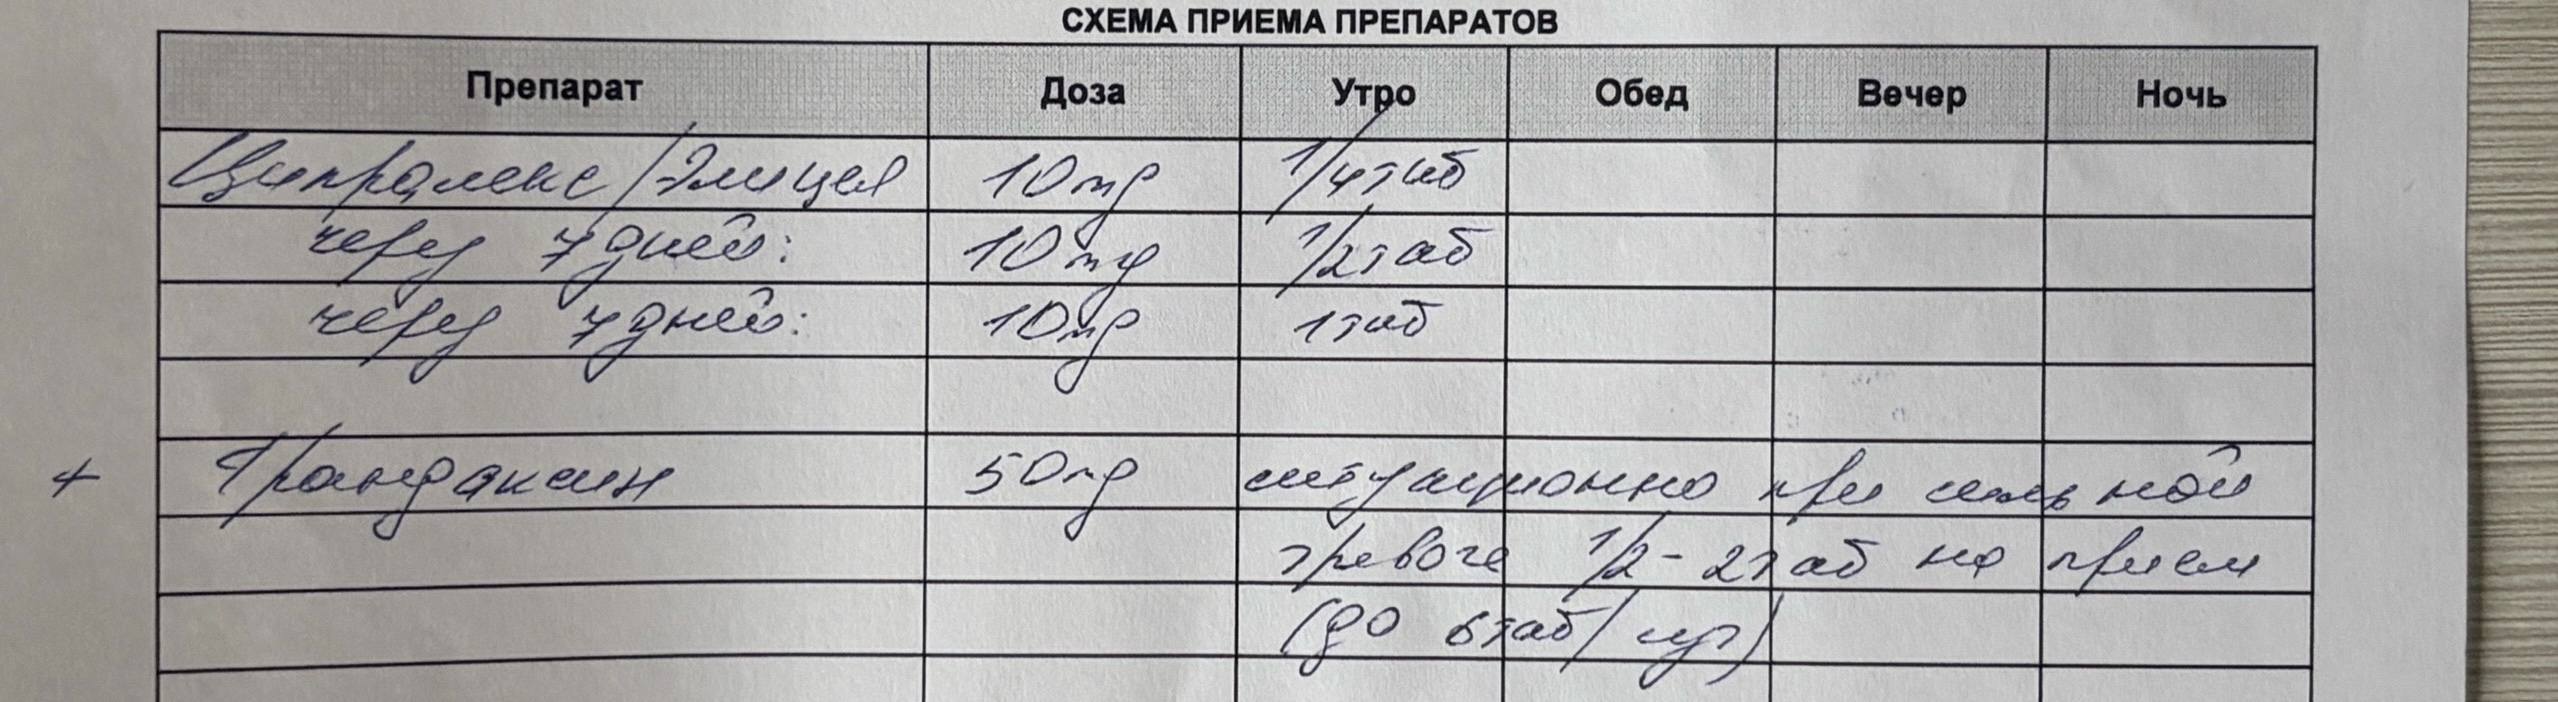 СХЕМА ПРИЕМА ПРЕПАРАТОВ
Препарат Доза Утро Обед Вечер Ночь
Ципралекс/Элицея 10mg 1/4таб
через 7 дней: 10mg 1/2таб
через 7 дней: 10mg 1таб
+ Грандаксин 50mg ситуационно при сильной
тревоге 1/2-2таб на прием
(до 6таб/сут)